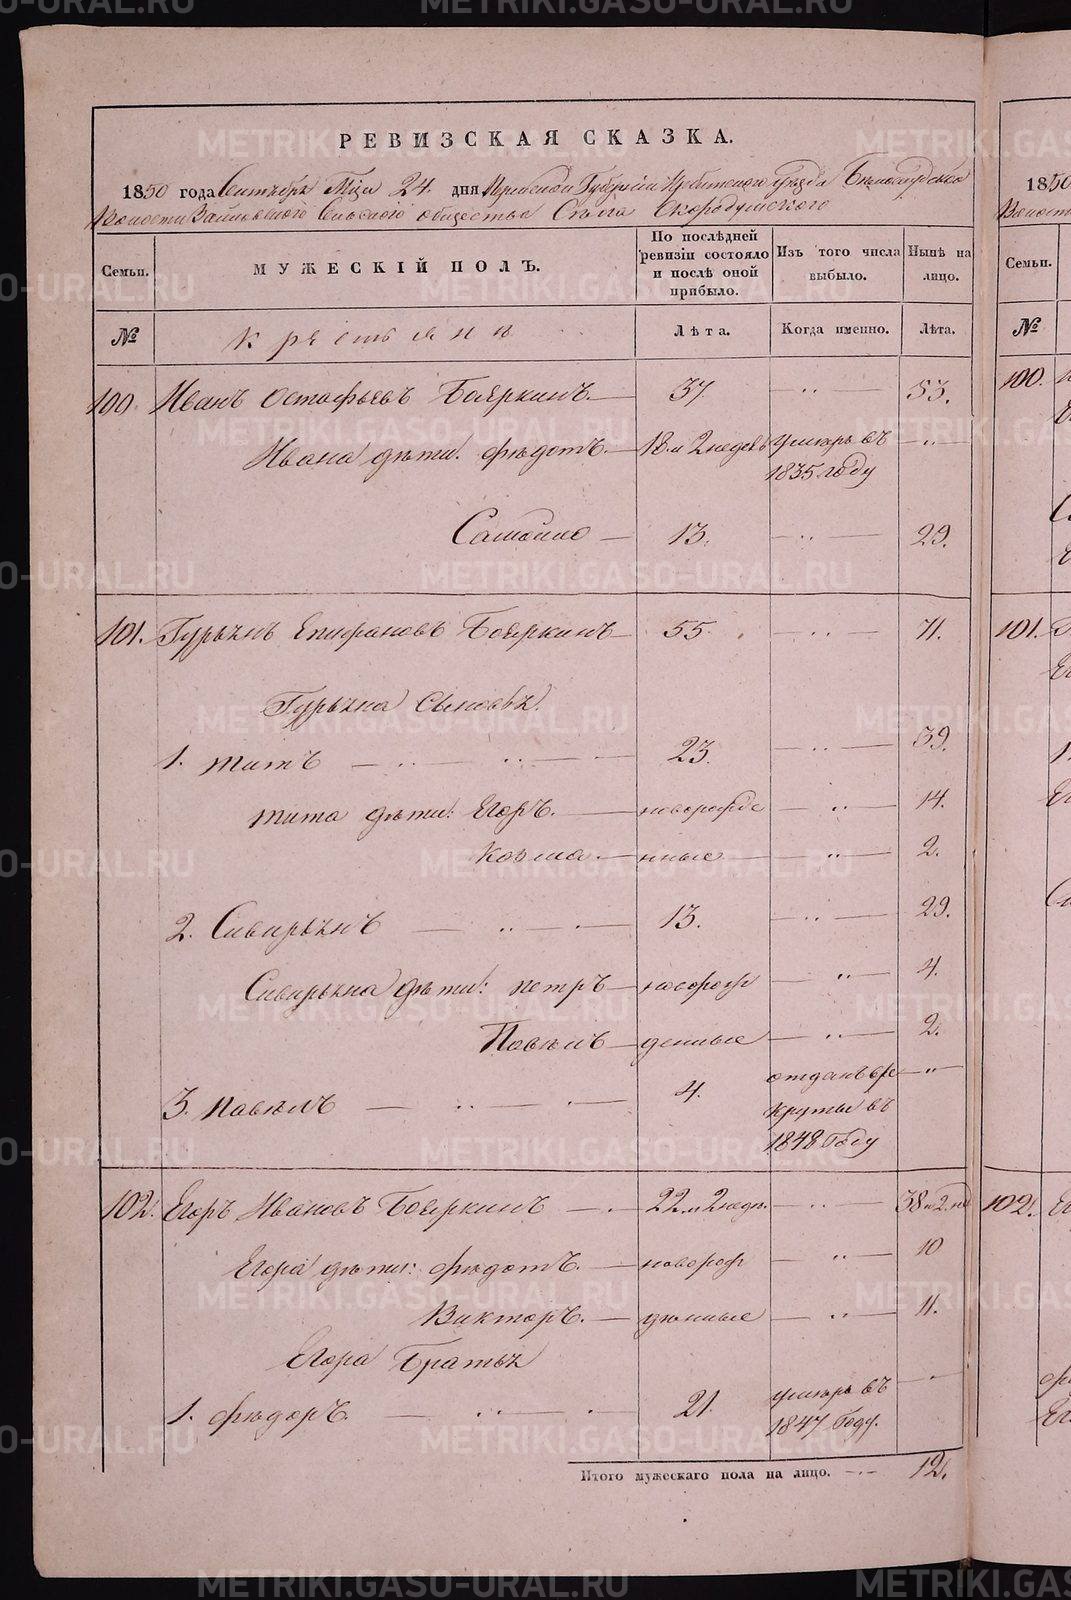 METRIKI.GASO-URAL.RU
РЕВИЗСКАЯ СКАЗКА.
1850 года Сентября Мца 24 дня Пермской Губернiи Ирбитского уѣзда Бѣлослудской
Волости Зайковского Сельского общества Села Скородумского
Семьи. МУЖЕСКIЙ ПОЛЪ. По послѣдней ревизiи состояло и послѣ оной прибыло. Изъ того числа выбыло. Нынѣ на лицо.
№ крестьяне Лѣта. Когда именно. Лѣта.
100 Иванъ Остафьевъ Бояркинъ. 37. — „ — 53.
Ивана дѣти: Фѣдотъ. 18. и 2 недѣль умеръ въ 1835 году — „ —
Самойло — 13. — „ — 29.
101. Гурьянъ Епифановъ Бояркинъ 55. — „ — 71.
Гурьяна Сыновья
1. Титъ 23. — „ — 39.
Тита дѣти: Егоръ. — новорожде — „ — 14.
Козма. — нные — „ — 2.
2. Сивирьянъ 13. — „ — 29.
Сивирьяна дѣти: Петръ — новорож — „ — 4.
Павѣлъ — денные — „ — 2.
3. Павѣлъ 4. отданъ въ ре круты въ 1848 Году — „ —
102. Егоръ Ивановъ Бояркинъ 22. и 2 нед. — „ — 38 и 2. нд
Егора дѣти: Фѣдотъ. — новорож — „ — 10
Викторъ. — дѣнные — „ — 11.
Егора Братья
1. Фѣдоръ. 21. умеръ въ 1847 Году.
Итого мужескаго пола на лицо. 12.
1850
Волост
Семьи.
№
100.
101.
102.